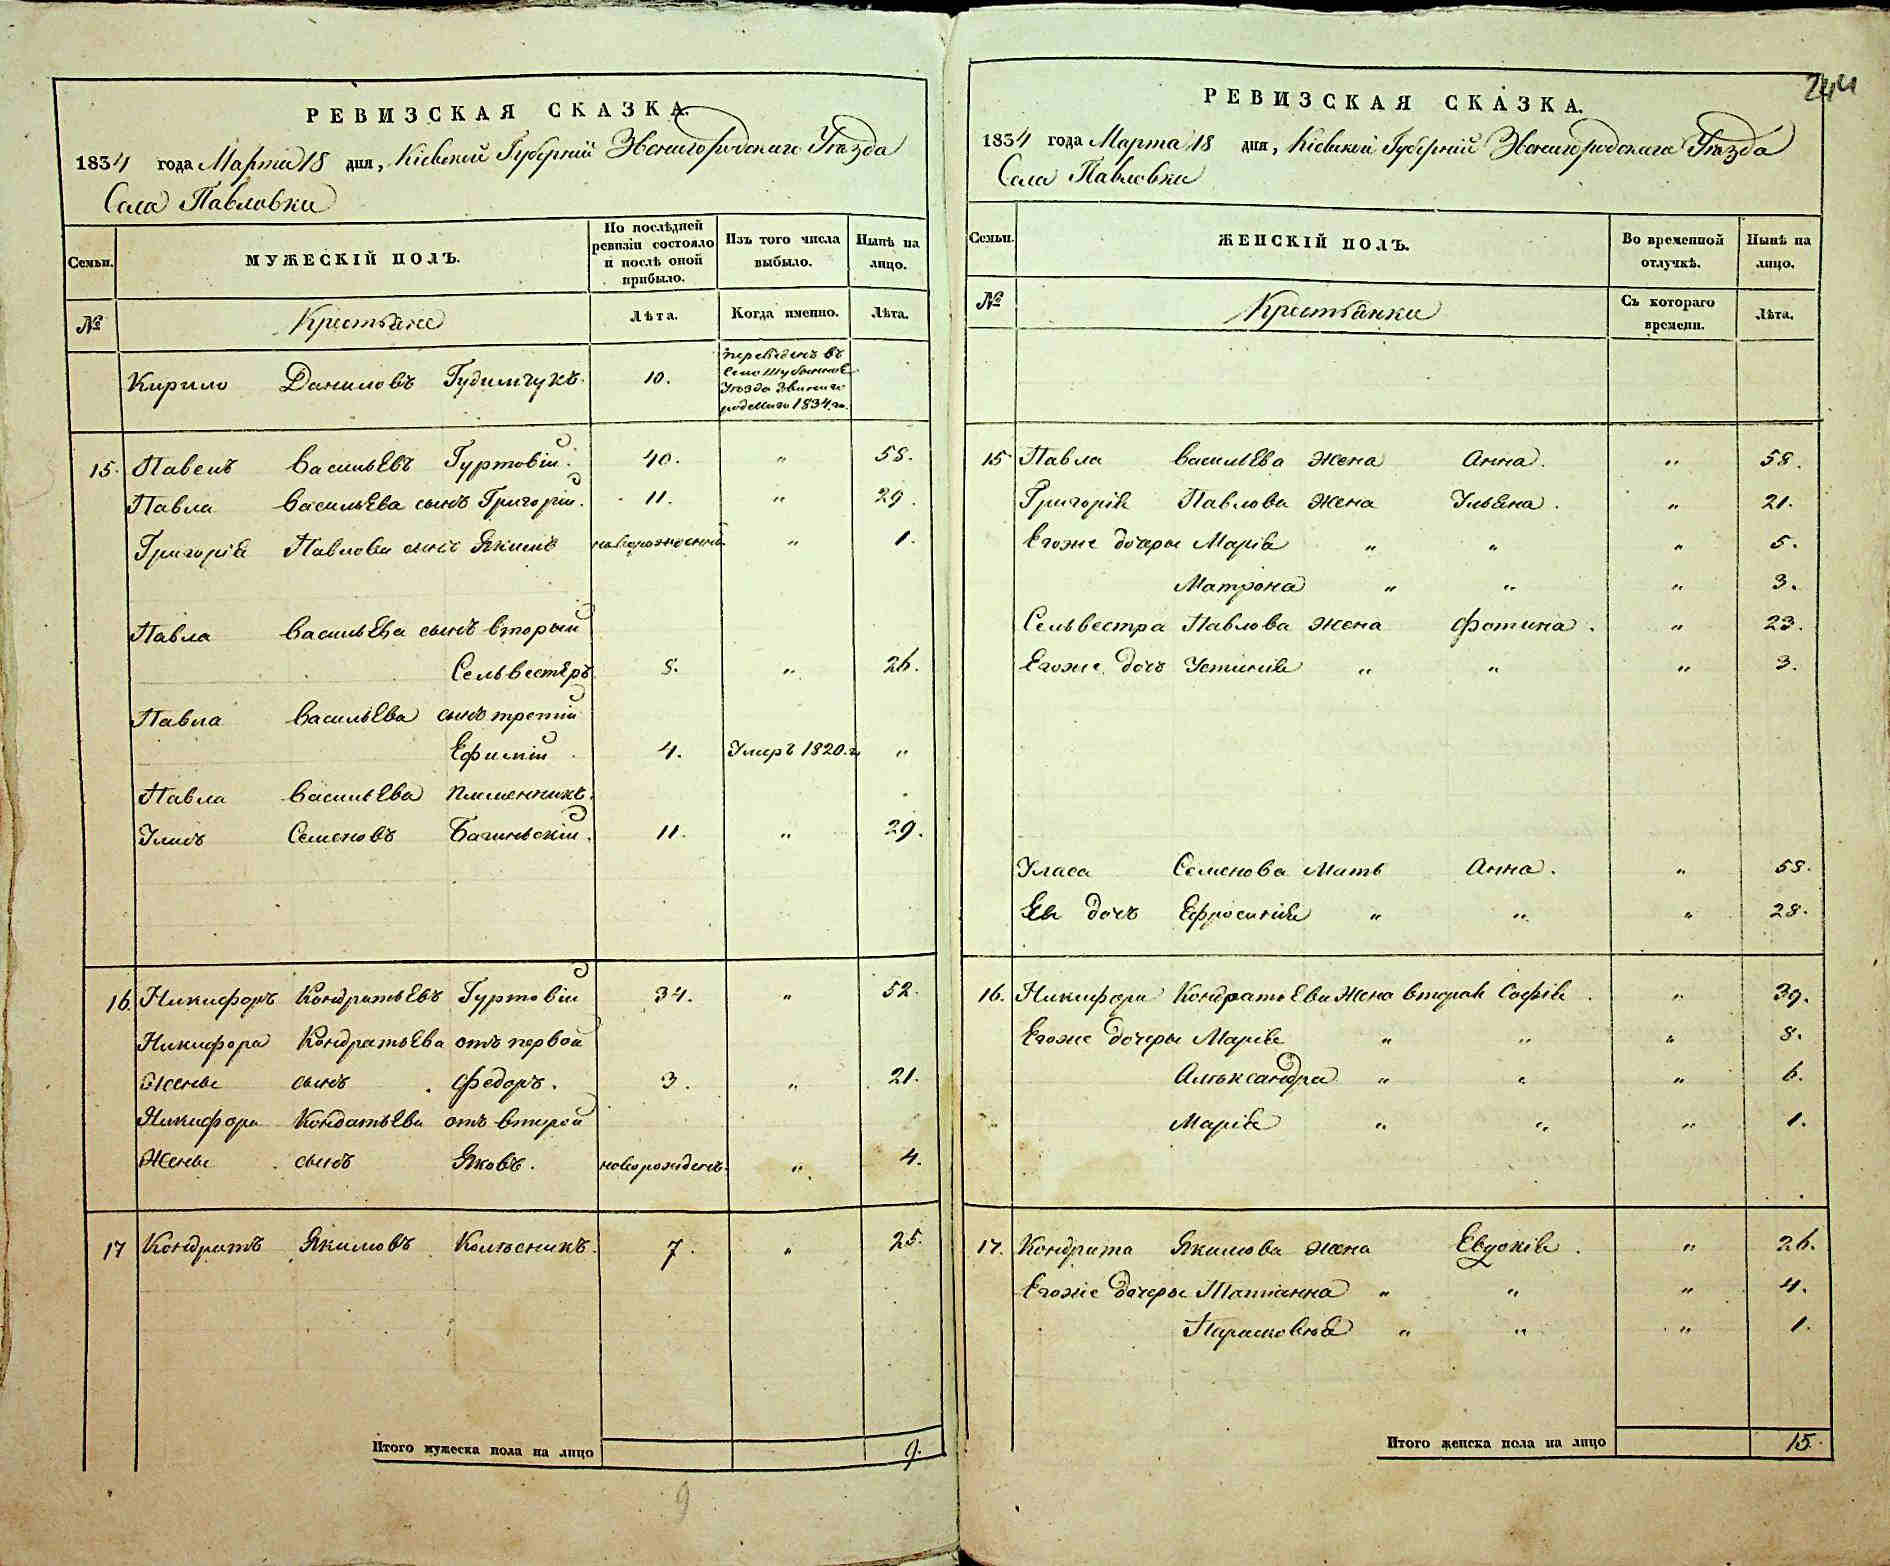 244
РЕВИЗСКАЯ СКАЗКА.
1834 года Марта 18 дня, Кіевской Губерніи Звенигородскаго Уѣзда
Села Павловки
Семьи.
МУЖЕСКІЙ ПОЛЪ.
По послѣдней ревизіи состояло и послѣ оной прибыло.
Изъ того числа выбыло.
Нынѣ на лицо.
№
Крестьяне
Лѣта.
Когда именно.
Лѣта.
Кирило Даниловъ Гудимчукъ. 10.
переведенъ въ
Село
Уѣзда Звениго
родскаго 1834 го.
15. Павелъ Васильевъ Гуртовій. 40. " 58.
Павла Васильева сынъ Григорій. 11. " 29.
Григорія Павлова сынъ Якимъ новорожденный " 1.
Павла Васильева сынъ вторый
Сельвестеръ 8. " 26.
Павла Васильева сынъ третій
Ефимій 4. Умеръ 1820. г. "
Павла Васильева племенникъ.
Семеновъ 11. " 29.
16. Никифоръ Кондратьевъ Гуртовій 34. " 52.
Никифора Кондратьева отъ первой
Жены сынъ Федоръ. 3. " 21.
Никифора Кондатьева отъ второй
Жены сынъ Яковъ. новорожденъ. " 4.
17 Кондратъ Якимовъ Колѣсникъ. 7. " 25.
Итого мужеска пола на лицо 9.
9
РЕВИЗСКАЯ СКАЗКА.
1834 года Марта 18 дня, Кіевской Губерніи Звенигородскаго Уѣзда
Села Павловки
Семьи.
ЖЕНСКІЙ ПОЛЪ.
Во временной отлучкѣ.
Нынѣ на лицо.
№
Крестьянки
Съ котораго времени.
Лѣта.
15 Павла Васильева жена Анна. " 58.
Григорія Павлова жена Ульяна. " 21.
Егоже дочеры Марія " " " 5.
Матрона " " " 3.
Сельвестра Павлова жена Фотина. " 23.
Егоже дочь Устинія " " " 3.
Уласа Семенова Мать Анна. " 58.
Ея дочъ Ефросинія " " " 28.
16. Никифора Кондратьева жена вторая Софія. " 39.
Егоже дочеры Марія " " " 8.
Алѣксандра " " " 6.
Марія " " " 1.
17. Кондрата Якимова жена Евдокія. " 26.
Егоже дочеры Татіанна " " " 4.
Парасковія " " " 1.
Итого женска пола на лицо 15.